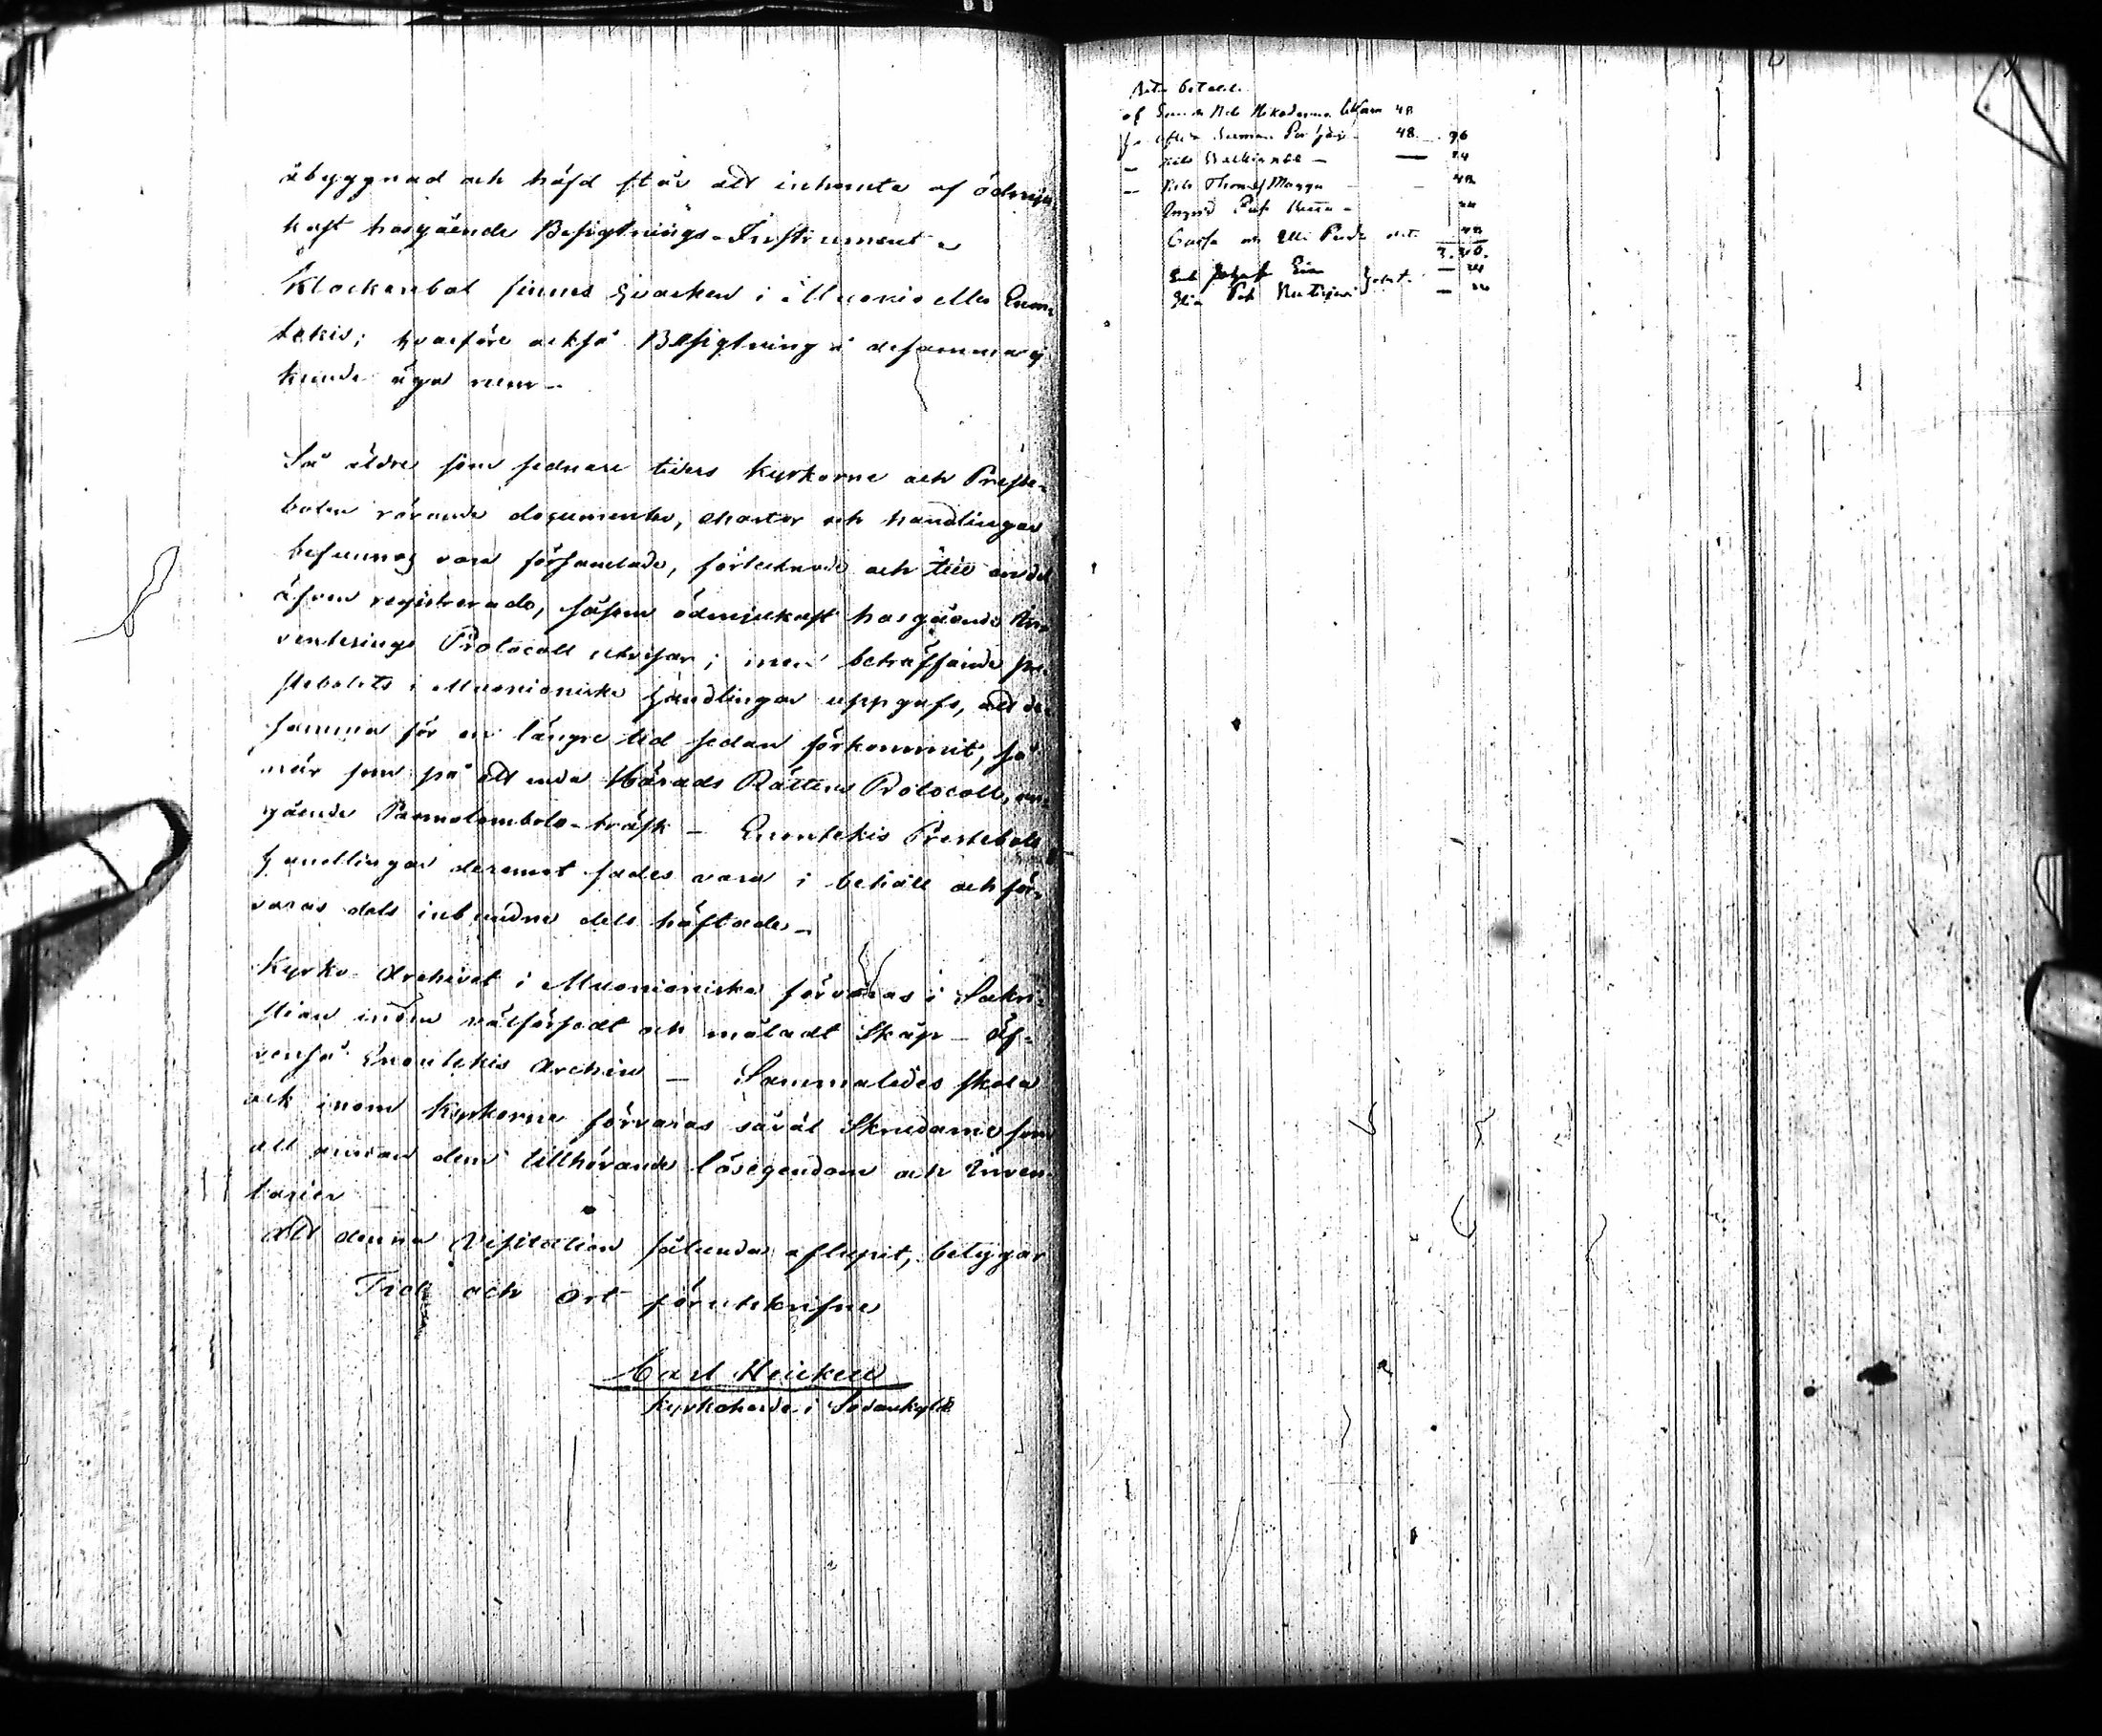 åbyggnad och häfd står att inhemta af ödmju
kast hosgående Besigtnings-Instrument
Klockarebol finnes hvarken i Muonio eller Enon
tekis; hvarföre också Besigtning å desamma ej
kunde äga rum –
Så äldre som sednare tiders kyrkorne och Preste-
bolen rörande documenter, chartor och handlingar
befunnos vara församlade, förtecknade och till en del
äfven registrerade, såsom ödmjukast hosgående In-
venterings Protocoll utvisar; men beträffande pre-
stebolets i Muonioniska handlingar uppgafs, att de-
samma för en längre tid sedan förkommit, så
när som på ett enda Härads Rättens Protocoll, an-
gående träsk – Enontekis Prestebols
handlingar deremot sades vara i behåll och för-
varas dels inbundne dels häftade –
Kyrko Archivet i Muonioniska förvaras i Sakri-
stian inom välförsedt och måladt Skåp – Äf-
venså Enontekis Archiv – Sammaledes skola
ock inom Kyrkorne förvaras såväl Skrudarne som
all annan dem tillhörande lösegendom och Inven-
tarier
Att denna Visitation sålunda aflupit, betygar
Tid och Ort förutskrifne
Carl Heickell
Kyrkoherde i Sodankylä
betald
af Nils 48
48 96
Nils – 24
Nils Thomass Magga 48
Ingrid 24
och Elli 48
24
24